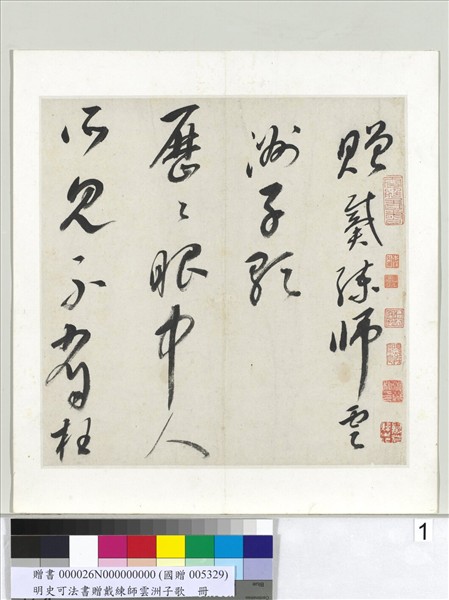 贈戴練師雲
洲子歌
歷〻眼中人
所見不枉
1
贈書 000026N000000000 (國贈 005329)
明史可法書贈戴練師雲洲子歌 冊